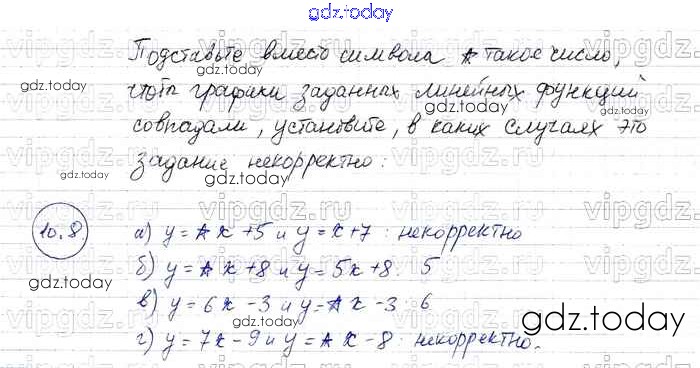 gdz.today
Подставьте вместо символа * такое число,
чтобы графики заданных линейных функций
совпадали, установите, в каких случаях это
задание некорректно:
10.8. а) y = * x + 5 и y = x + 7 : некорректно
б) y = * x + 8 и y = 5x + 8 : 5
в) y = 6x - 3 и y = * x - 3 : 6
г) y = 7x - 9 и y = * x - 8 : некорректно.
gdz.today
gdz.today
gdz.today
gdz.today
gdz.today
gdz.today
gdz.today
vipgdz.ru vipgdz.ru vipgdz.ru